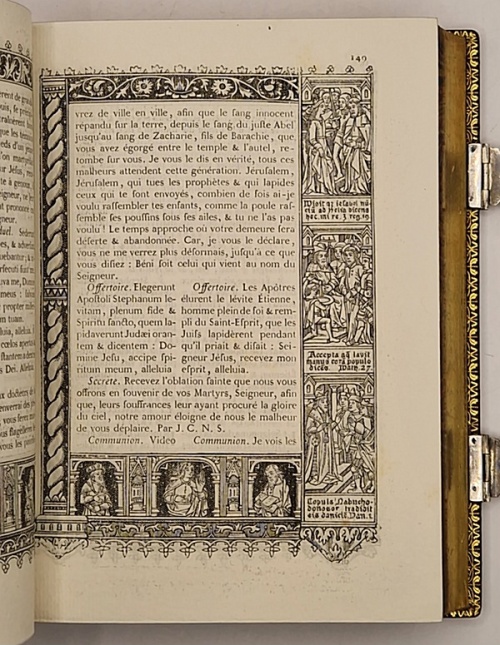 149
vrez de ville en ville, afin que le ſang innocent
répandu ſur la terre, depuis le ſang du juſte Abel
juſqu'au ſang de Zacharie, fils de Barachie, que
vous avez égorgé entre le temple & l'autel, re-
tombe ſur vous. Je vous le dis en vérité, tous ces
malheurs attendent cette génération. Jéruſalem,
Jéruſalem, qui tues les prophètes & qui lapides
ceux qui te ſont envoyés, combien de fois ai-je
voulu raſſembler tes enfants, comme la poule raſ-
ſemble ſes pouſſins ſous ſes ailes, & tu ne l'as pas
voulu! Le temps approche où votre demeure ſera
déſerte & abandonnée. Car, je vous le déclare,
vous ne me verrez plus déſormais, juſqu'à ce que
vous diſiez: Béni ſoit celui qui vient au nom du
Seigneur.
Offertoire. Elegerunt
Apoſtoli Stephanum le-
vitam, plenum fide &
Spiritu ſancto, quem la-
pidaverunt Judæi oran-
tem & dicentem: Do-
mine Jeſu, accipe ſpi-
ritum meum, alleluia
Offertoire. Les Apôtres
élurent le lévite Étienne,
homme plein de foi & rem-
pli du Saint-Eſprit, que les
Juifs lapidèrent pendant
qu'il priait & diſait: Sei-
gneur Jéſus, recevez mon
eſprit, alleluia.
Secrète. Recevez l'oblation ſainte que nous vous
offrons en ſouvenir de vos Martyrs, Seigneur, afin
que, leurs ſouffrances leur ayant procuré la gloire
du ciel, notre amour éloigne de nous le malheur
de vous déplaire. Par J. C. N. S.
Communion. Video
Communion. Je vois les
hec mi re. 3 reg. 19.
Accepta aq̄ lavit
manus corā populo
Copula Nabucho-
donosor tradidit